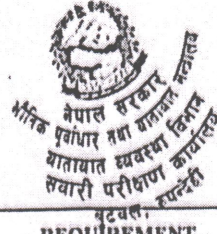 नेपाल सरकार
भौतिक पूर्वाधार तथा यातायात मन्त्रालय
यातायात व्यवस्था विभाग
सवारी परीक्षण कार्यालय
बुटवल, रुपन्देही
REQUIREMENT